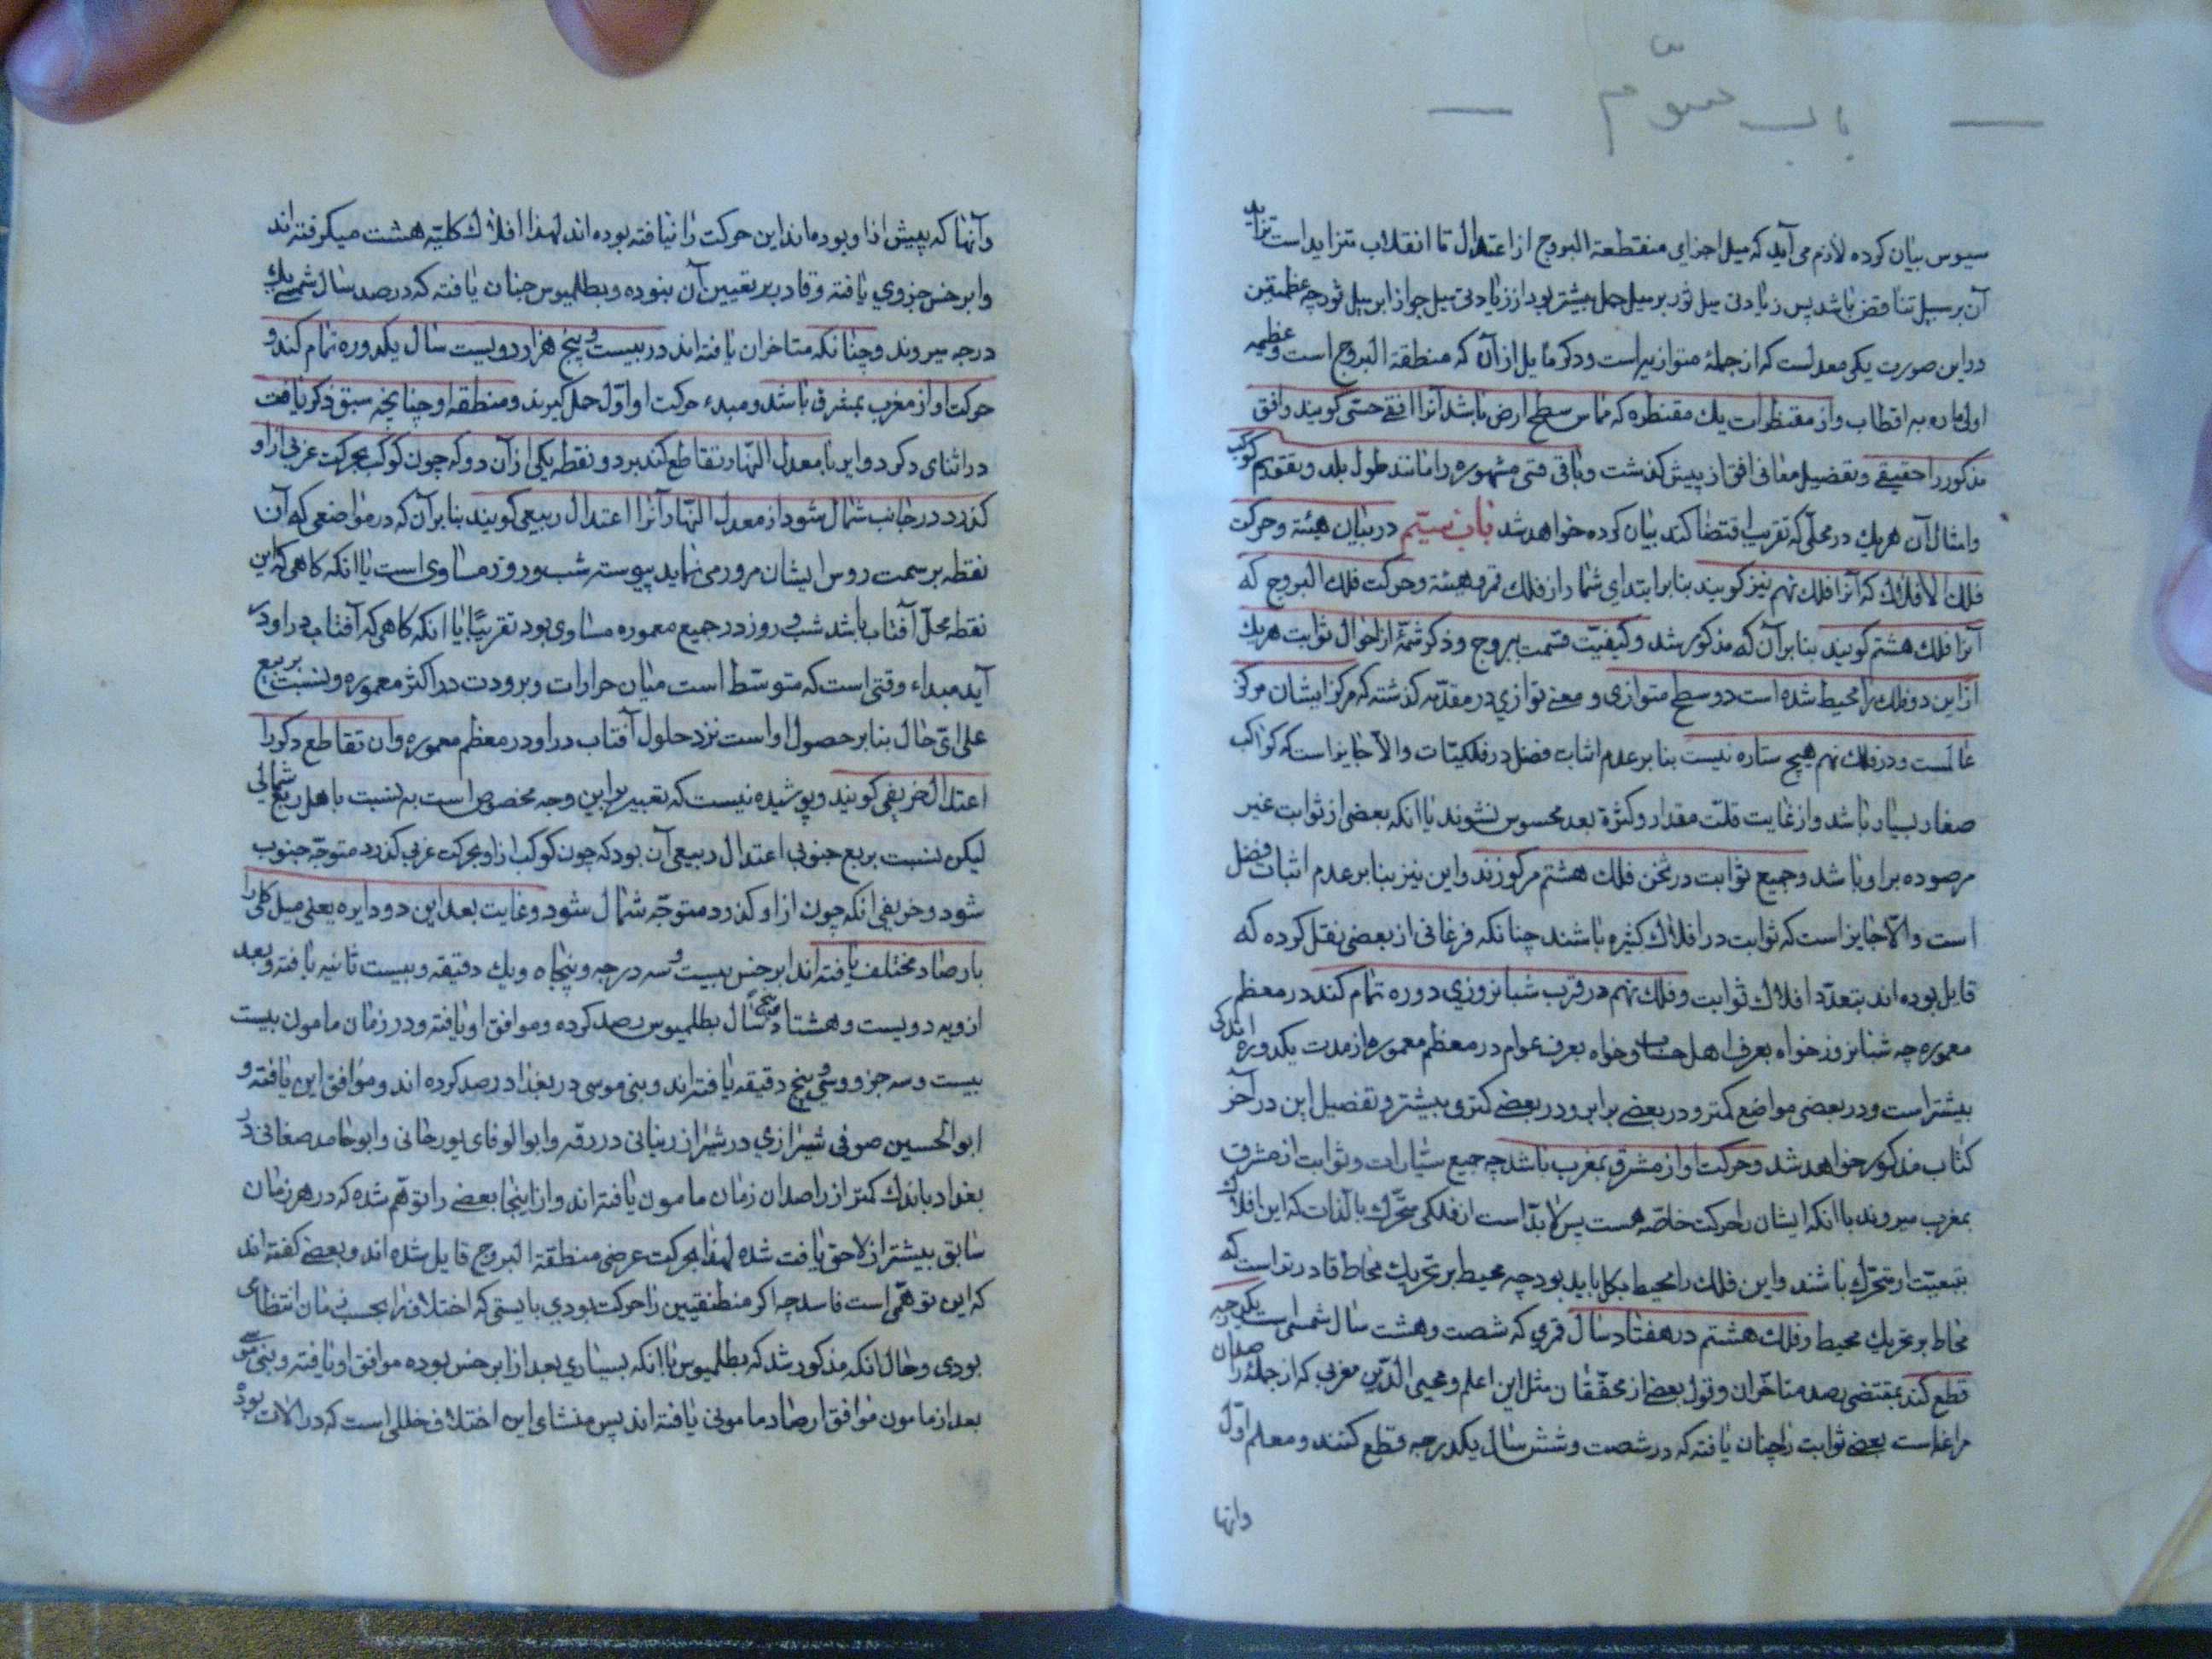 باب سوّم
سیوس بیان کرده لازم می آید که میل اجزای منقطعة البروج از اعتدال تا انقلاب متزاید است تزاید
آن بر سبیل تناقض باشد پس زیادتی میل ثور بر میل حمل بیشتر بود از زیادتی میل جوزا بر میل ثور چه عظیمتین
در این صورت یکی معدلست که از جملهٔ متوازیه است و دکر مایل از آن که منطقة البروج است و عظیمه
اولی ماره به اقطاب و از مقنطرات یك مقنطره که مماس سطح ارض باشد آنرا افق حسّی کویند و افق
مذکور را حقیقی و تفضیل معانی افق از پیش کذشت و باقی قسی مشهوره را مانند طول بلد و تقویم کوکب
و امثال آن هریك در محلّی که تقریب اقتضا کند بیان کرده خواهد شد باب سیّم در بیان هیئة و حرکت
فلك الافلاك که آنرا فلك نهم نیز کویند بنا بر ابتدای شمار از فلك قمر و هیئة و حرکت فلك البروج که
آنرا فلك هشتم کویند بنا بر آن که مذکور شد و کیفیّت قسمت ببروج و ذکر شمّهٔ از احوال ثوابت هریك
از این دو فلك را محیط شده است دو سطح متوازی و معنی توازی در مقدّمه کذشته که مرکز ایشان مرکز
عالمست و در فلك نهم هیچ ستاره نیست بنا بر عدم اثبات فضل در فلکیّات و الا جایز است که کواکب
صغار بسیار باشد و از غایت قلّت مقدار و کثرة بعد محسوس نشوند یا انکه بعضی از ثوابت غیر
مرصوده بر او باشد و جمیع ثوابت در ثخن فلك هشتم مرکوزند و این نیز بنا بر عدم اثبات فضل
است و الّا جایز است که ثوابت در افلاك کثیره باشند چنانکه فرغانی از بعضی نقل کرده که
قایل بوده اند بتعدّد افلاك ثوابت و فلك نهم در قرب شبانروزی دوره تمام کند در معظم
معموره چه شبانروز خواه بعرف اهل حساب و خواه بعرف عوام در معظم معموره از مدت یکدوره اندکی
بیشتر است و در بعضی مواضع کمتر و در بعضی برابر و در بعضی کمتر و بیشتر و تفصیل این در آخر
کتاب مذکور خواهد شد و حرکت او از مشرق بمغرب باشد چه جمیع سیّارات و ثوابت از مشرق
بمغرب میروند با انکه ایشان را حرکت خاصّه هست پس لابدّ است از فلکی متحرّك بالذات که این افلاك
بتبعیّت او متحرّك باشند و این فلك را محیط بکل باید بود چه محیط بر تحریك محاط قادر تر است که
محاط بر تحریك محیط و فلك هشتم در هفتاد سال قمری که شصت و هشت سال شمسی است یکدرجه
قطع کند بمقتضی رصد متاخّران و قول بعضی از محقّقان مثل ابن اعلم و محیی الدّین مغربی که از جملهٔ راصدان
مراغه است بعضی ثوابت را چنان یافته که در شصت و شش سال یکدرجه قطع کنند و معلم اوّل
وانها
و آنها که پیش از او بوده اند این حرکت را نیافته بوده اند لهذا افلاك کلیّه هشت میکرفته اند
و ابرخس جزوی یافته و قادر بر تعیین آن نبوده و بطلمیوس چنان یافته که در صد سال شمسی یك
درجه میروند و چنانکه متاخران یافته اند در بیست و پنج هزار و دویست سال یکدوره تمام کند و
حرکت او از مغرب بمشرق باشد و مبدء حرکت او اوّل حمل کیرند و منطقهٔ او چنانچه سبق ذکر یافت
در اثنای ذکر دوایر با معدل النّهار تقاطع کند بر دو نقطه یکی از آن دو که چون کوکب بحرکت غربی از او
کذرد در جانب شمال شود از معدل النّهار آنرا اعتدال ربیعی کویند بنا بر آن که در مواضعی که آن
نقطه بر سمت روس ایشان مرور می نماید پیوسته شب و روز مساوی است یا انکه کاهی که این
نقطه محلّ آفتاب باشد شب و روز در جمیع معموره مساوی بود تقریبًا یا انکه کاهی که آفتاب در او در
آید مبداء وقتی است که متوسّط است میان حرارات و برودت در اکثر معموره و نسبت بربیع
علی ایّ حال بنا بر حصول او است نزد حلول آفتاب در او در معظم معموره و ان تقاطع دکر را
اعتدال خریفی کویند و پوشیده نیست که تعبیر بر این وجه مخصوص است به نسبت باهل ربع شمالی
لیکن نسبت بربع جنوبی اعتدال ربیعی آن بود که چون کوکب از او بحرکت غربی کذرد متوجّه جنوب
شود و خریفی انکه چون از او کذرد متوجّه شمال شود و غایت بعد این دو دایره یعنی میل کلی را
بارصاد مختلف یافته اند ابرخس بیست و سه درجه و پنجاه و یك دقیقه و بیست ثانیه یافته و بعد
ازو به دویست و هشتاد و پنج سال بطلمیوس رصد کرده و موافق او یافته و در زمان مامون بیست
بیست و سه جزو و سی و پنج دقیقه یافته اند و بنی موسی در بغداد رصد کرده اند و موافق این یافته و
ابوالحسین صوفی شیرازی در شیراز و بتانی در رقه و ابوالوفای بورجانی و ابوحامد صغانی در
بغداد باندك کمتر از راصدان زمان مامون یافته اند و از اینجا بعضی را توهّم شده که در هر زمان
سابق بیشتر از لاحق یافت شده لهذا بحرکت عرضی منطقة البروج قایل شده اند و بعضی کفته اند
که این توهّمی است فاسد چه اکر منطقتین را حرکت بودی بایستی که اختلاف را بحسب زمان انتظامی
بودی و حال انکه مذکور شد که بطلمیوس با انکه بسیاری بعد از ابرخس بوده موافق او یافته و بنی موسی
بعد از مامون موافق ارصاد مامونی یافته اند پس منشای این اختلاف خللی است که در الات بوده